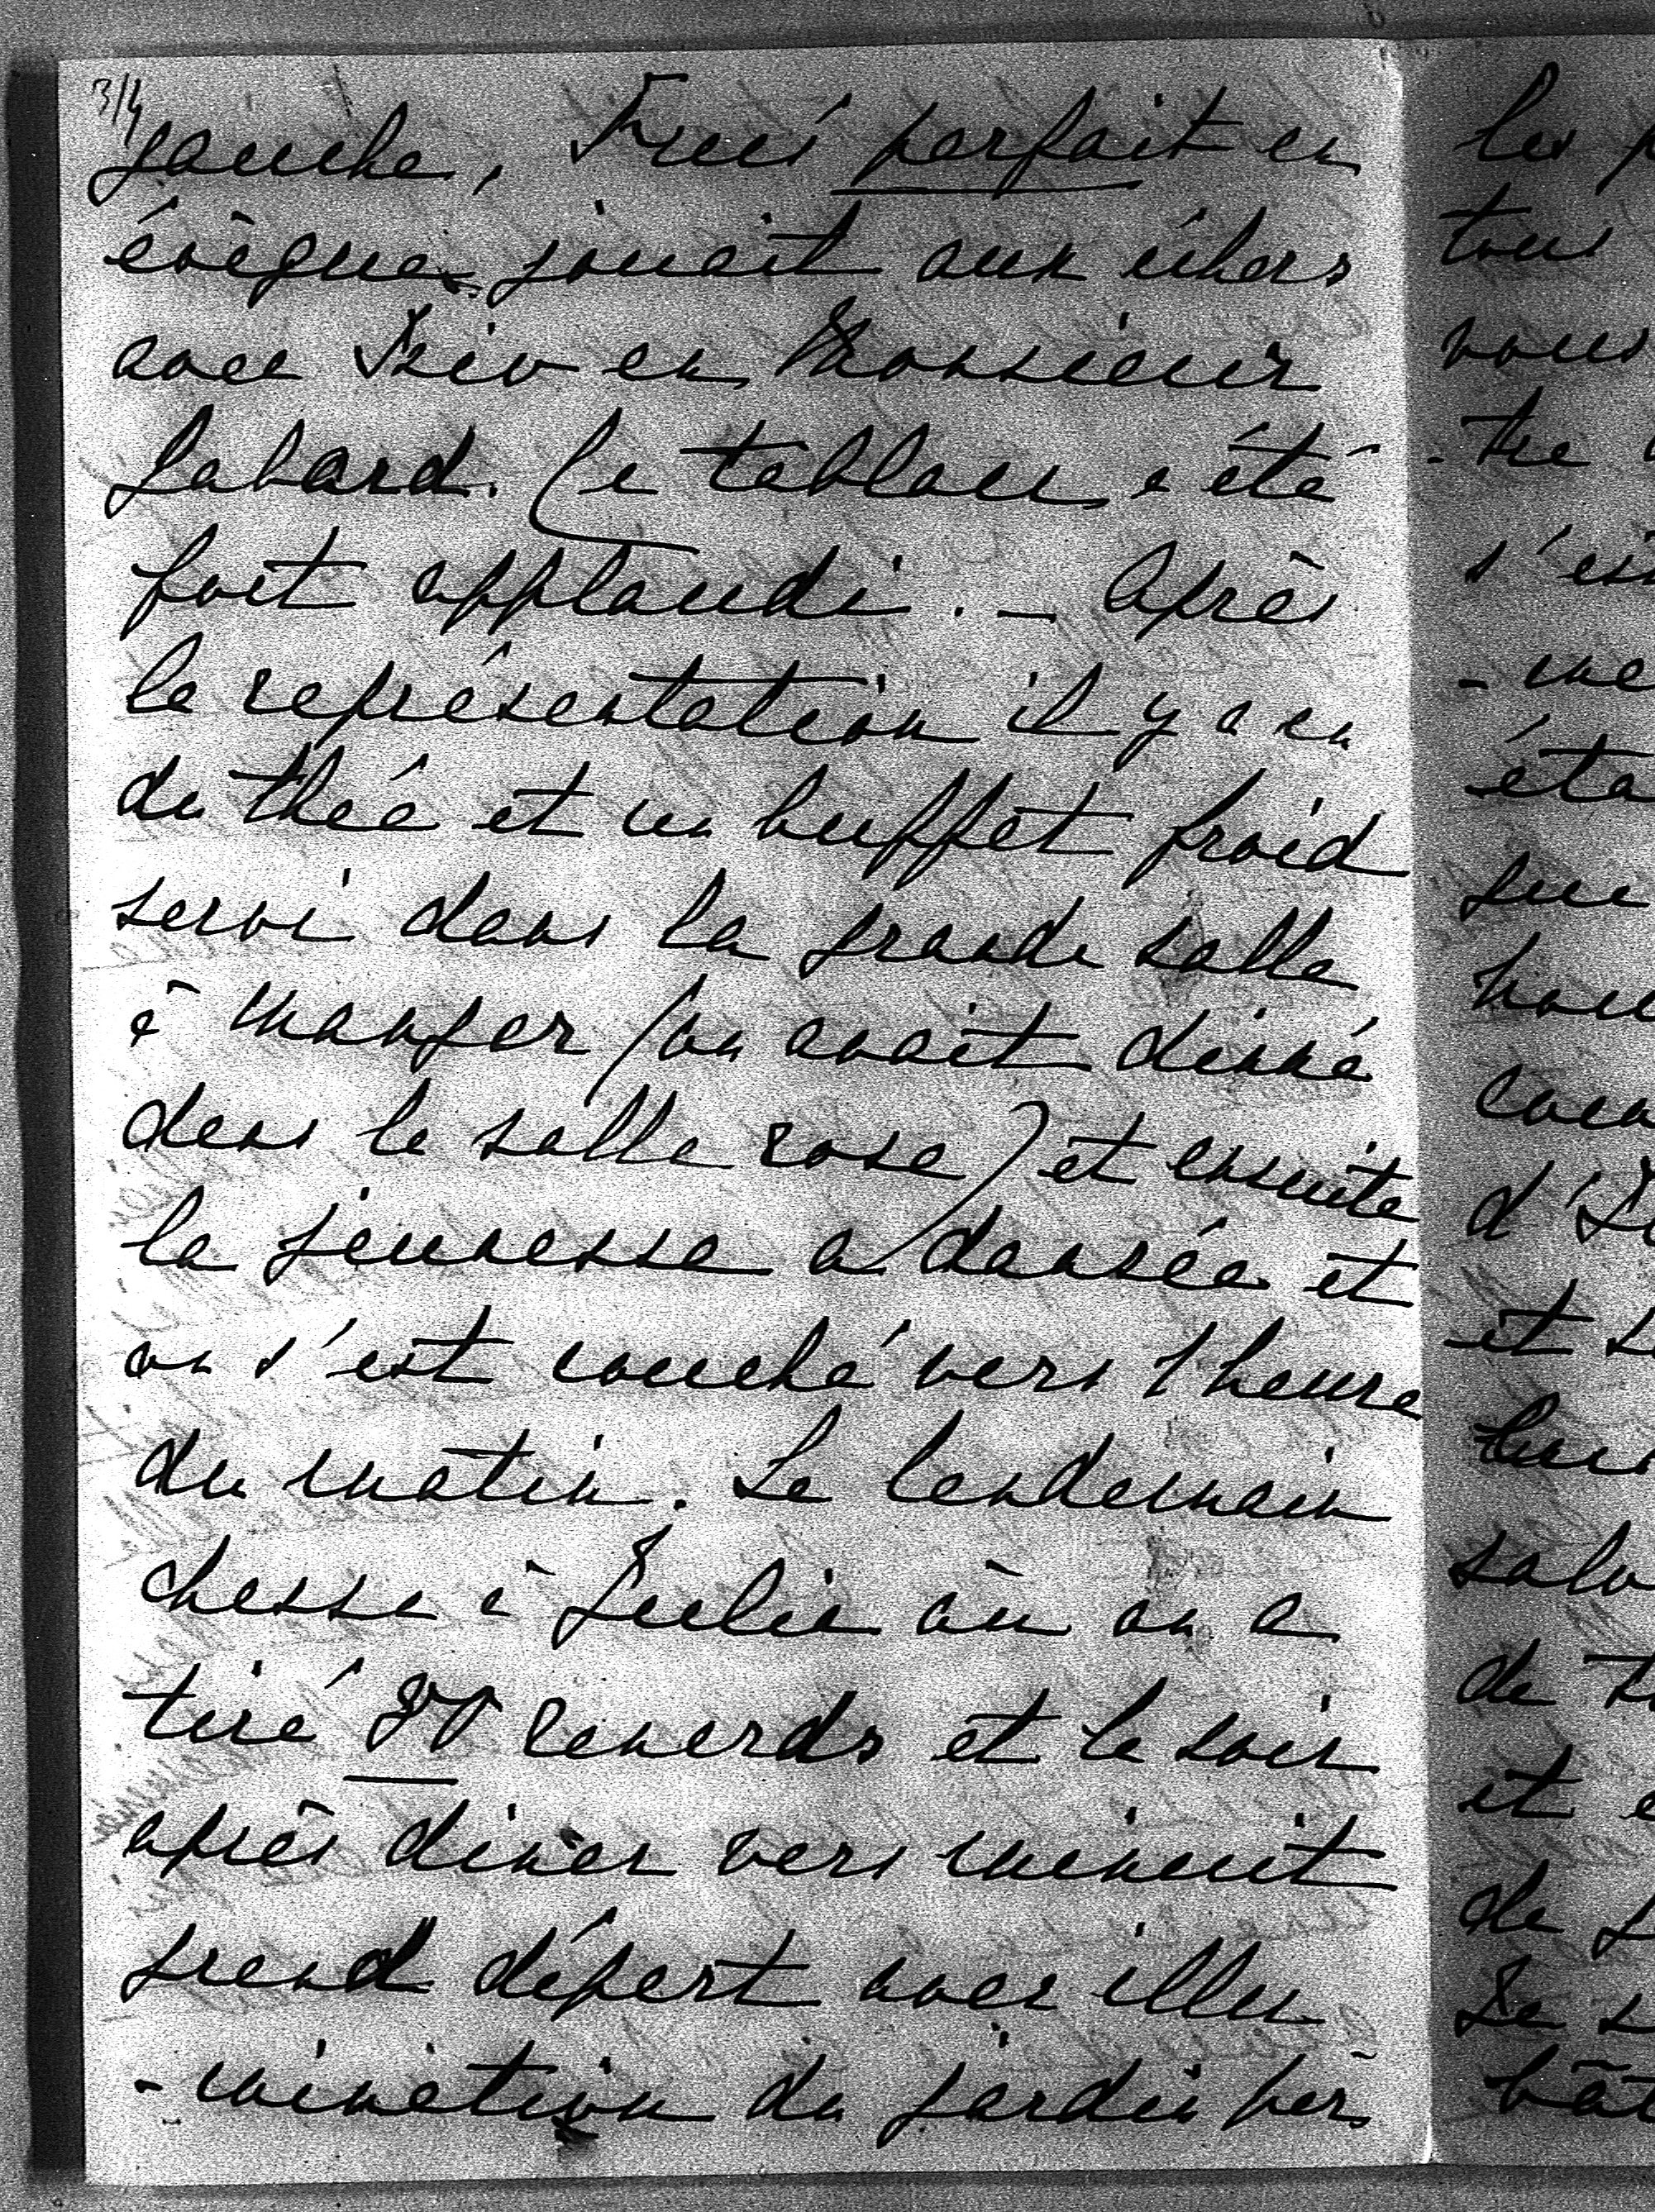 3/4
gauche,  parfait en
évêque jouait aux échecs
avec  en Monsieur
Jabard. Ce tableau a été
fort applaudi. — Après
la représentation il y a eu
du thé et un buffet froid
servi dans la grande salle
à manger (on avait dinné
dans la salle rose) et ensuite
la jeunesse a dansée et
on s'est couché vers 1 heure
du matin. Le lendemain
chasse à Julia où on a
tiré renards et le soir
après dîner vers minuit
grand départ avec illu
-mination du jardin par
les
tous
vous
-tre
s'es
-me
éta
que
nou
coeu
d'
et
leur
salo
de
et
de
Le
bât